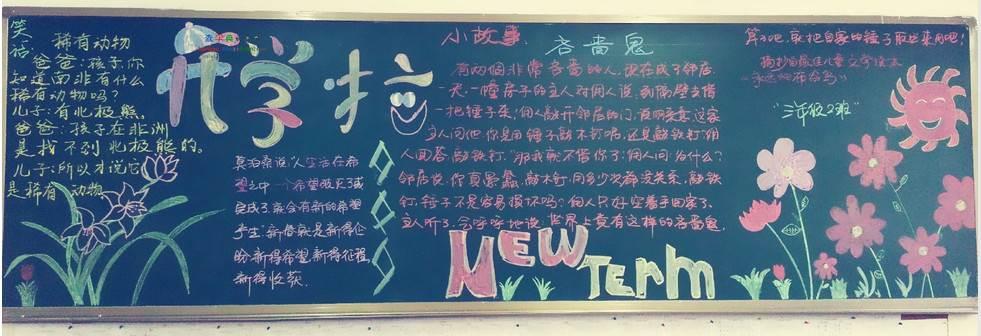 笑话: 稀有动物
爸爸:孩子,你
知道南非有什么
稀有动物吗?
儿子:有北极熊。
爸爸:孩子在非洲
是找不到北极熊的。
儿子:所以才说它
是稀有动物
开学啦
莫泊桑说:"人生活在希
望之中一个希望破灭了或
实现了就会有新的希望
产生.新学期是新得企
盼新得希望新得征程
新得收获.
小故事 吝啬鬼
有两个非常吝啬的人,
一天,一幢房子的主人对佣人说:到隔壁去借
一把锤子来,佣人敲开邻居的门,说明来意,这家
主人问他:你是用锤子敲木钉呢,还是敲铁钉,佣
人回答:敲铁钉."那我就不借你了,佣人问:为什么?
邻居说:你真愚蠢,敲木钉,同多少次都没关系,敲铁
钉,锤子不是容易损坏吗?佣人只好空着手回家了.
主人听了,气呼呼地说:世界上竟有这样的吝啬鬼.
算了吧,就把自家的锤子取出来用吧!
"三年级2班"
NEW
TERM